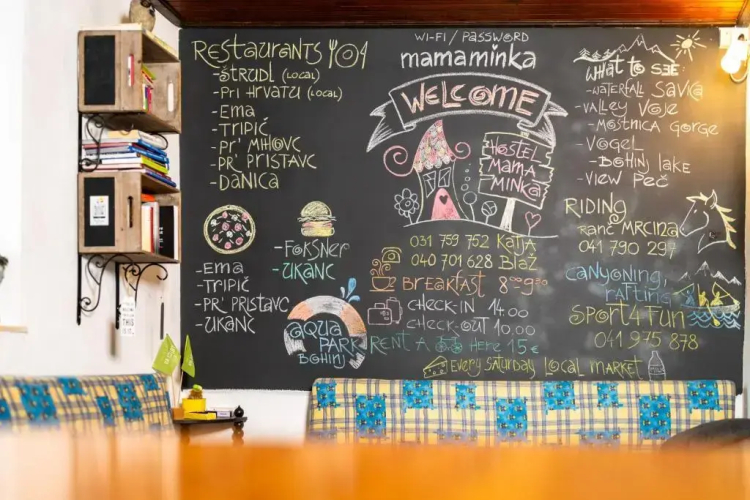 Restaurants
- Štrudl (local)
- Pri Hrvatu (local)
- Ema
- Tripič
- Pr' Mihovc
- Pr' Pristavc
- Danica
- Ema
- Tripič
- Pr' Pristavc
- Ukanc
- Foksner
- Ukanc
Aqua
Park
Bohinj
Wi-Fi / Password
mamaminka
WELCOME
Hostel
Mama
Minka
031 759 752 Katja
040 701 628 Blaž
Breakfast 8⁰⁰-9³⁰
check-in 14.00
check-out 10.00
Rent a here 15 €
Every Saturday local market
What to see:
- Waterfall Savica
- Valley Voje
- Mostnica Gorge
- Vogel
- Bohinj lake
- View Peč
Riding
Ranč Mrcina
041 790 297
Canyoning,
rafting
Sport4Fun
041 975 878